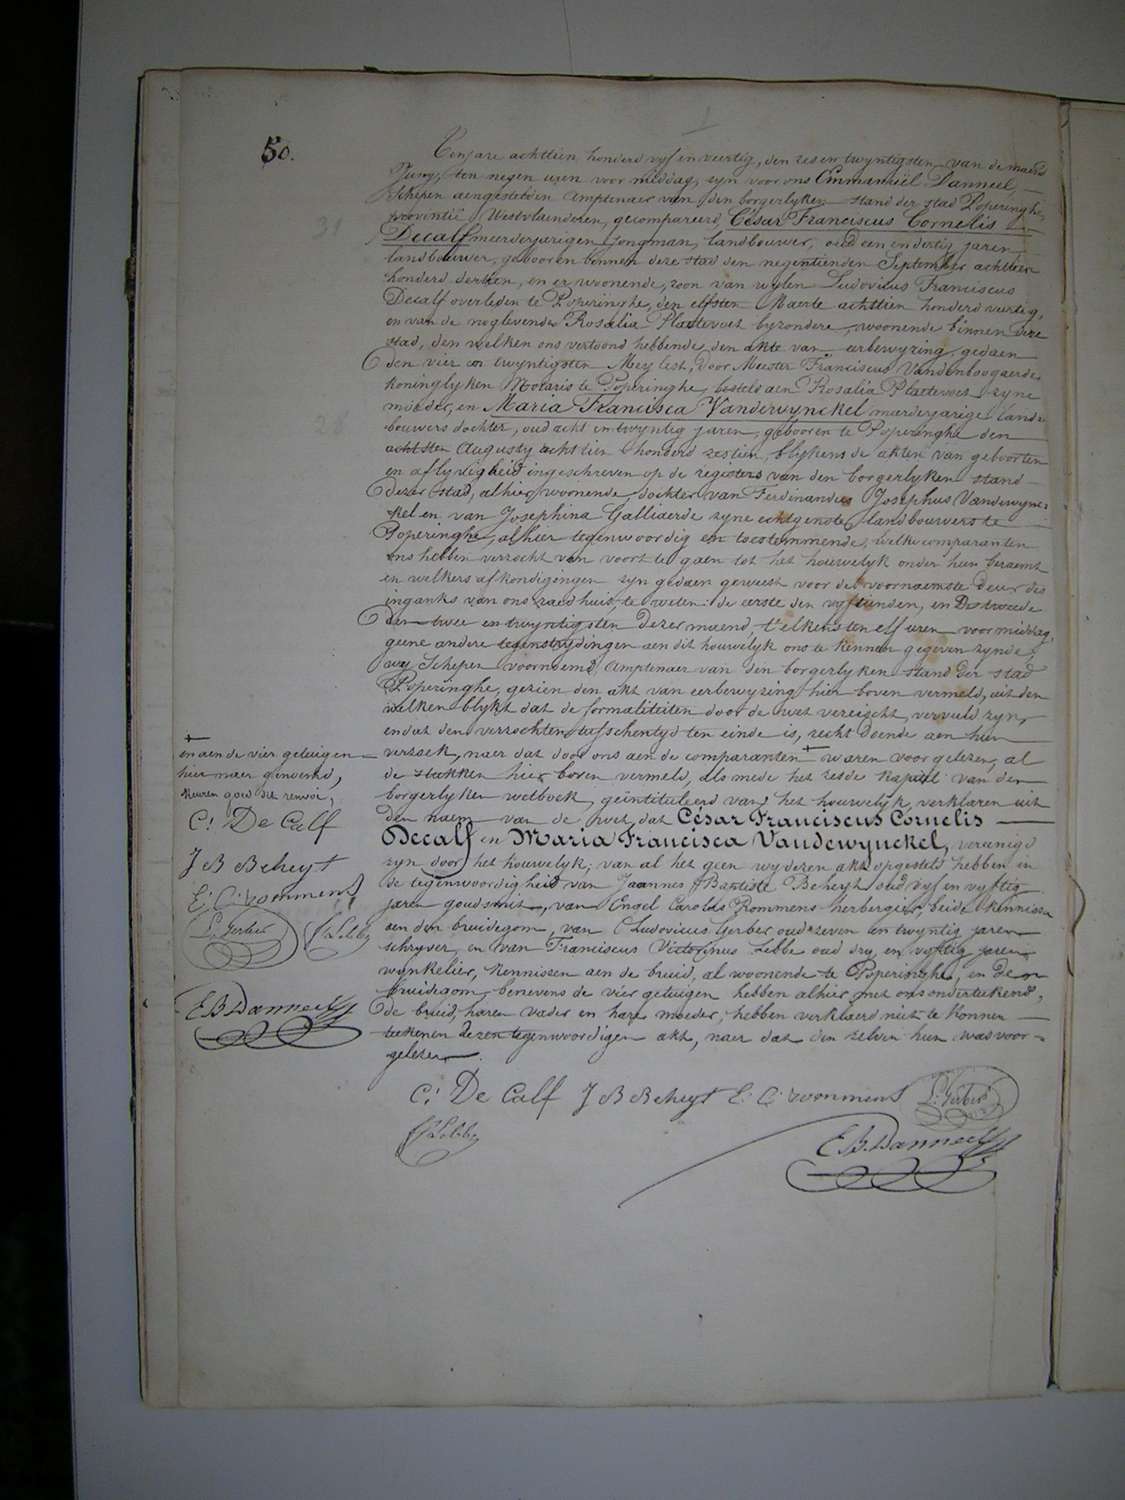 50.
Ten jare achttien honderd vyf en veertig, den zes en twyntigsten van de maend
Juny, ten negen uren voor middag, zyn voor ons Emmanuël Danneel,
Schepen aengestelden Amptenaer van den borgerlyken stand der stad Poperinghe,
provintie Westvlaenderen, gecompareerd César Franciscus Cornelis
Decalf meerderjarigen jongman, landbouwer, oud een en dertig jaren
landbouwer, gebooren binnen deze stad den negentienden September achttien
honderd dertien, en er woonende, zoon van wylen Ludovicus Franciscus
Decalf overleden te Poperinghe, den elfsten Maerte achttien honderd veertig,
en van de noglevende Rosalia Plaetevoet byzondere, woonende binnen deze
stad, den welken ons vertoond hebbende den akte van eerbewyzing gedaen
den vier en twyntigsten Mey lest, voor Meester Franciscus Vandenboogaerde
koninglyken Notaris te Poperinghe, aen Rosalia Plaetevoet zyne
moeder, en Maria Francisca Vandewynckel marderjarige land-
bouwers dochter, oud acht en twyntig jaren, gebooren te Poperinghe den
achtsten Augusty achttien honderd zestien, blykens de akten van geboorten
en aflyvigheid ingeschreven op de registers van den borgerlyken stand
dezer stad, alhier woonende, dochter van Ferdinandus Josephus Vandewyne-
kel en van Josephina Galliaerde zyne echtgenote, landbouwers te
Poperinghe, alhier tegenwoordig en toestemmende, welke comparanten
ons hebben verzocht van voort te gaen tot het houwelyk onder hun beraemt
en welkers afkondigingen zyn gedaen geweest voor de voornaemste deur des
ingangs van ons raedhuis, te weten: de eerste den vyftienden, en De tweede
den twee en twyntigsten dezer maend, t'elkens ten elf uren voormiddag,
geene andere tegenstrydingen aen dit houwelyk ons te kennen gegeven zynde,
wy Schepen voornoemd, Amptenaer van den borgerlyken stand der stad
Poperinghe, gezien den akt van eerbewyzing hier boven vermeld, uit den
welken blykt dat de formaliteiten door de wet vereischt, vervuld zyn,
en dat den verzochten tusschentyd ten einde is, recht doende aen hun
verzoek, naer dat door ons aen de comparanten + waren voorgelezen, al
de stukken hier boven vermeld, alsmede het zesde kapitel van den
borgerlyken wetboek, geïntituleerd van het houwelyk, verklaren uit
den naem van de wet, dat César Franciscus Cornelis
Decalf en Maria Francisca Vandewynckel, vereenigd
zyn door het houwelyk, van al het geen wy dezen akt opgesteld hebben in
de tegenwoordigheid van Joannes Baptiste Beheyt oud vyf en vyftig
jaren goudsmit, van Engel Carolus Rommens herbergier, beide kennissen
aen den bruidegom, van Ludovicus Gerber oud zeven en twyntig jaren
schryver, en van Franciscus Victorinus Lebbe oud dry en vyftig jaren
wynkelier, kennissen aen de bruid, al woonende te Poperinghe, en den
bruidegom, benevens de vier getuigen hebben alhier met ons onderteekend,
de bruid, haren vader en hare moeder, hebben verklaerd niet te konnen
teekenen dezen tegenwoordigen akt, naer dat den zelven hun was voor-
gelezen.
C: De Calf J B Beheyt E: C: Rommens L: Gerber
F V Lebbe
E. B. Danneel
+
en aen de vier getuigen
hier naer genoemd,
keuren goed dit renvoi,
C: De Calf
J B Beheyt
E: C: Rommens
L: Gerber F V Lebbe
E. B. Danneel